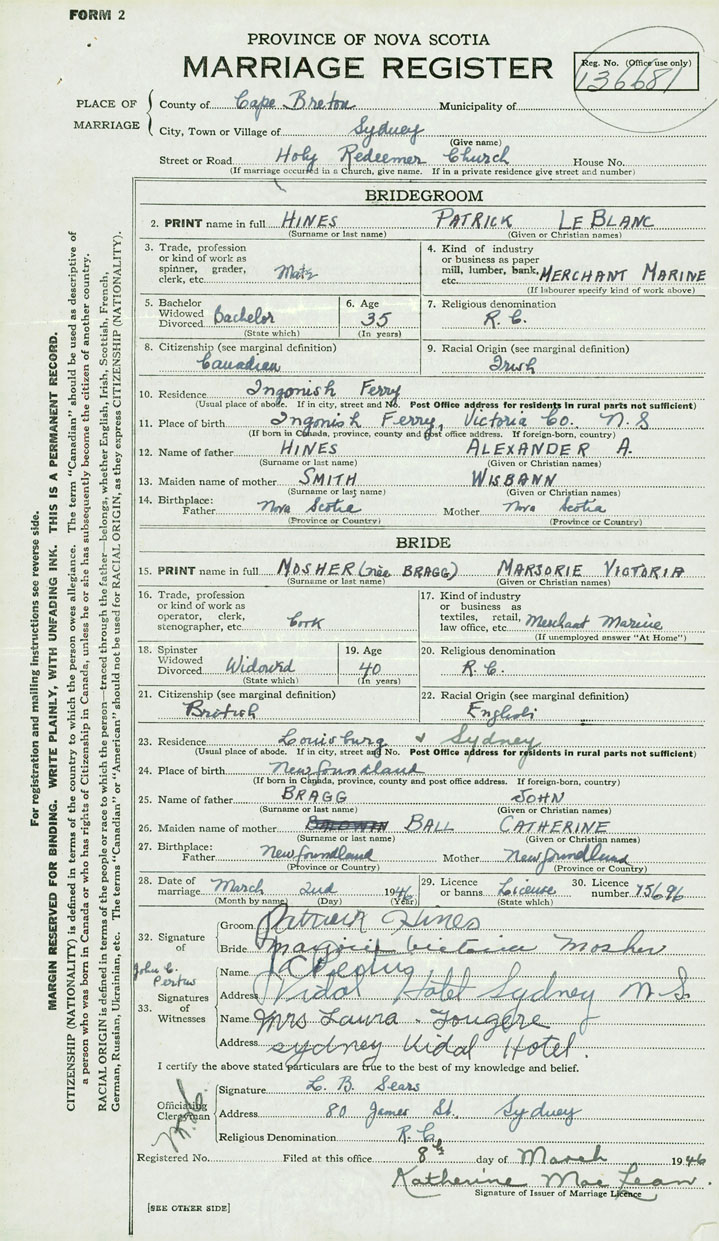 FORM 2
PROVINCE OF NOVA SCOTIA
MARRIAGE REGISTER
Reg. No. (Office use only)
136681
PLACE OF MARRIAGE
County of Cape Breton Municipality of
City, Town or Village of Sydney
(Give name)
Street or Road Holy Redeemer Church House No.
(If marriage occurred in a Church, give name. If in a private residence give street and number)
BRIDEGROOM
2. PRINT name in full HINES PATRICK LEBLANC
(Surname or last name) (Given or Christian names)
3. Trade, profession or kind of work as spinner, grader, clerk, etc. Mate
4. Kind of industry or business as paper mill, lumber, bank, etc. MERCHANT MARINE
(If labourer specify kind of work above)
5. Bachelor Widowed Divorced Bachelor
(State which)
6. Age 35
(In years)
7. Religious denomination R. C.
8. Citizenship (see marginal definition) Canadian
9. Racial Origin (see marginal definition) Irish
10. Residence Ingonish Ferry
(Usual place of abode. If in city, street and No. Post Office address for residents in rural parts not sufficient)
11. Place of birth Ingonish Ferry, Victoria Co. N. S
(If born in Canada, province, county and post office address. If foreign-born, country)
12. Name of father HINES ALEXANDER A.
(Surname or last name) (Given or Christian names)
13. Maiden name of mother SMITH WISBANN
(Surname or last name) (Given or Christian names)
14. Birthplace: Father Nova Scotia Mother Nova Scotia
(Province or Country) (Province or Country)
BRIDE
15. PRINT name in full MOSHER (née BRAGG) MARJORIE VICTORIA
(Surname or last name) (Given or Christian names)
16. Trade, profession or kind of work as operator, clerk, stenographer, etc. Cook
17. Kind of industry or business as textiles, retail, law office, etc. Merchant Marine
(If unemployed answer "At Home")
18. Spinster Widowed Divorced Widowed
(State which)
19. Age 40
(In years)
20. Religious denomination R. C.
21. Citizenship (see marginal definition) British
22. Racial Origin (see marginal definition) English
23. Residence Louisburg & Sydney
(Usual place of abode. If in city, street and No. Post Office address for residents in rural parts not sufficient)
24. Place of birth Newfoundland
(If born in Canada, province, county and post office address. If foreign-born, country)
25. Name of father BRAGG JOHN
(Surname or last name) (Given or Christian names)
26. Maiden name of mother BALL CATHERINE
(Surname or last name) (Given or Christian names)
27. Birthplace: Father Newfoundland Mother Newfoundland
(Province or Country) (Province or Country)
28. Date of marriage March 2nd 1946
(Month by name) (Day) (Year)
29. Licence or banns License
(State which)
30. Licence number 75696
32. Signature of
Groom Patrick Hines
Bride Marjorie Victoria Mosher
John C.
33. Signatures of Witnesses
Name
Address Vidal Hotel Sydney N.S.
Name Mrs Laura Fougere
Address Sydney Vidal Hotel.
I certify the above stated particulars are true to the best of my knowledge and belief.
Officiating Clergyman
Signature L. B. Sears
Address 80 James St. Sydney
Religious Denomination R. C.
Registered No. Filed at this office 8th day of March 1946
Katherine MacLean.
Signature of Issuer of Marriage Licence
[SEE OTHER SIDE]
For registration and mailing instructions see reverse side.
MARGIN RESERVED FOR BINDING. WRITE PLAINLY, WITH UNFADING INK. THIS IS A PERMANENT RECORD.
CITIZENSHIP (NATIONALITY) is defined in terms of the country to which the person owes allegiance. The term "Canadian" should be used as descriptive of
a person who was born in Canada or who has rights of Citizenship in Canada, unless he or she has subsequently become the citizen of another country.
RACIAL ORIGIN is defined in terms of the people or race to which the person—traced through the father—belongs, whether English, Irish, Scottish, French,
German, Russian, Ukrainian, etc. The terms "Canadian" or "American" should not be used for RACIAL ORIGIN, as they express CITIZENSHIP (NATIONALITY).